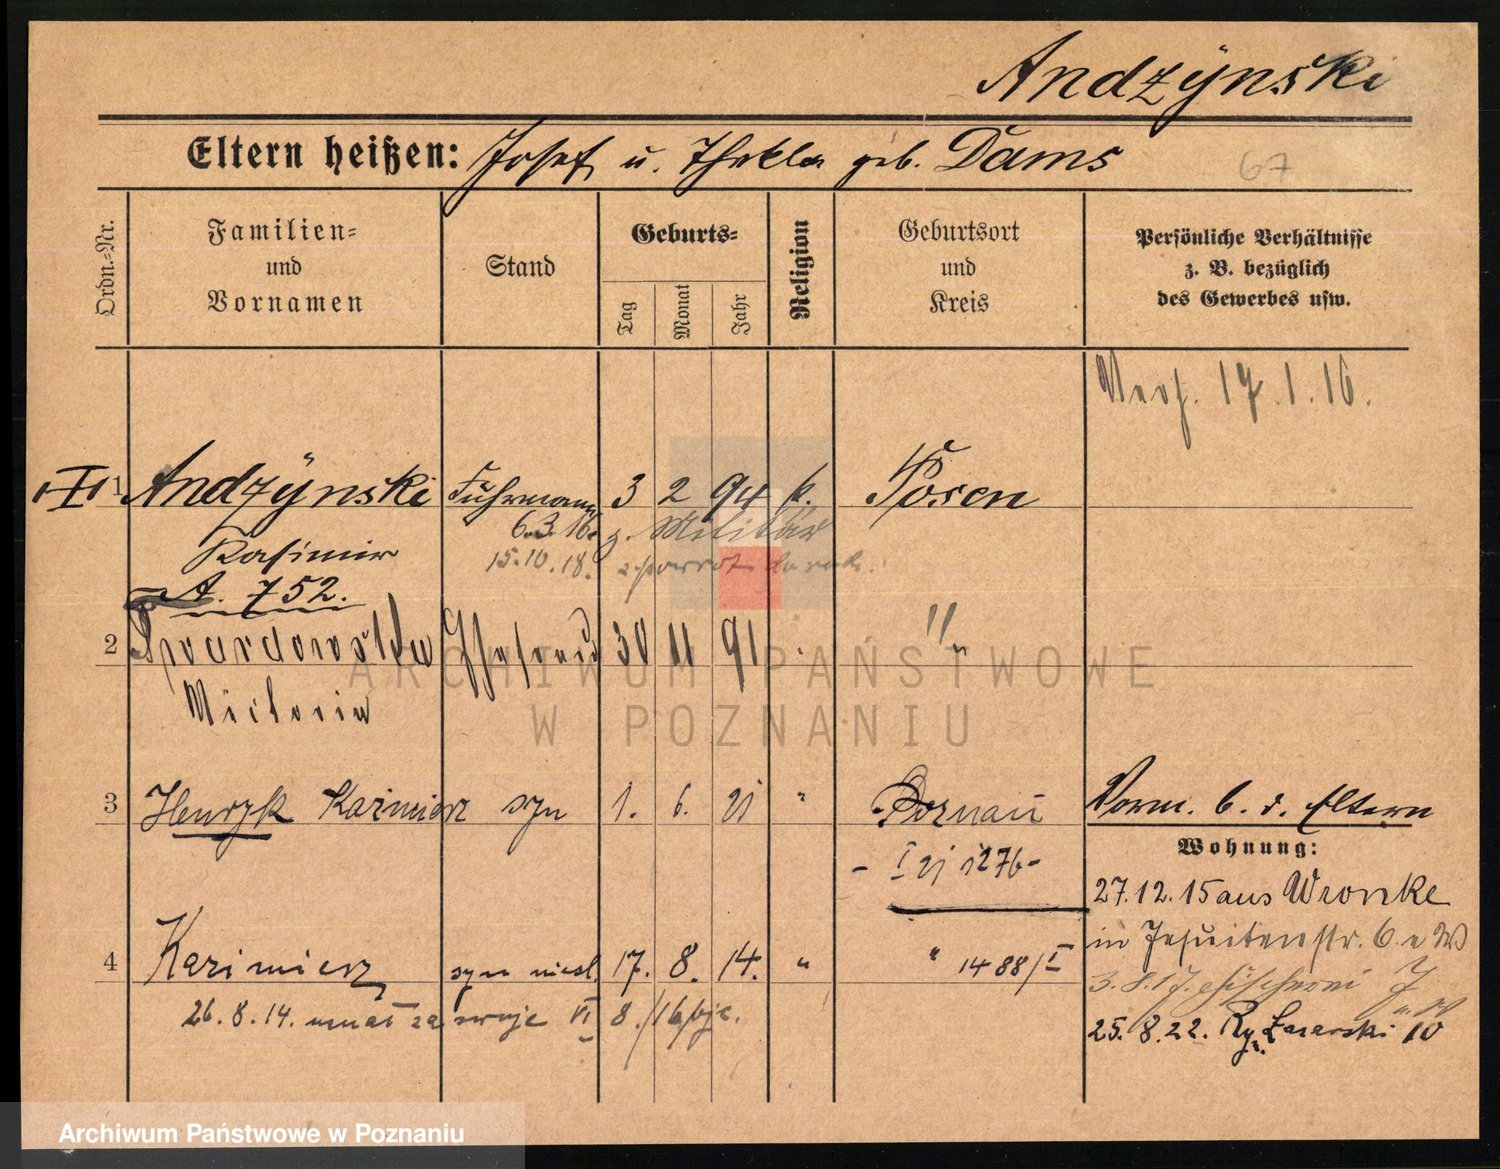 Andzÿnski
Eltern heißen: Josef u. Thekla geb. Dams
67
Ordn.-Nr.
Familien-
und
Vornamen
Stand
Geburts-
Tag
Monat
Jahr
Religion
Geburtsort
und
Kreis
Persönliche Verhältnisse
z. B. bezüglich
des Gewerbes usw.
17.1.16.
1 Andzÿnski Fuhrmann 3 2 94 k. Posen
6.3.16. z. Militär
Kasimir
15.10.18. z powrot
A. 752.
2 Ehefrau 30 11 91 "
Victoria
3 Henryk Kazimierz syn 1. 6. 21 " Poznań
Vorm. b. d. Eltern
Wohnung:
- I 21 1276 -
27.12.15 aus Wronke
in Jesuitenstr. 6.
4 Kazimierz syn 17. 8. 14. " " 1488/I
3.8.17.
26.8.14. uznał za swoje VI 8./16
25.8.22. Ry. Łazarski 10
ARCHIWUM PAŃSTWOWE
W POZNANIU
Archiwum Państwowe w Poznaniu